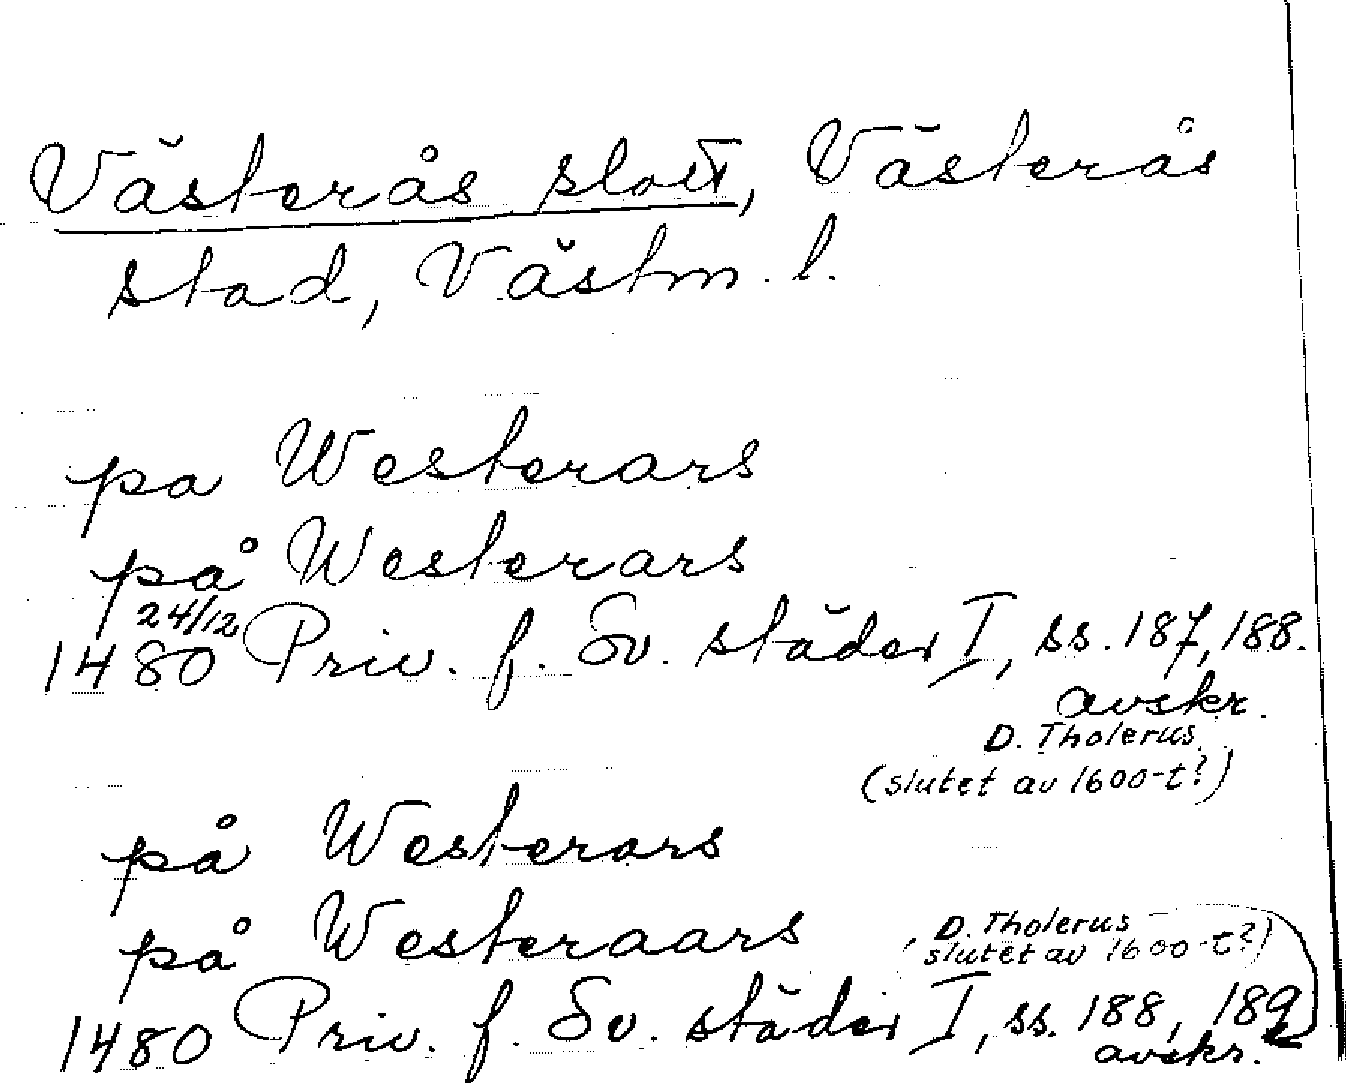 Västerås slott, Västerås
stad, Västm. l.
pa Westerars
på Westerars
24/12
1480 Priv. f. Sv. städer I, ss. 187, 188.
avskr.
D. Tholerus
(slutet av 1600-t?)
på Westerars
på Westeraars
D. Tholerus
slutet av 1600-t?)
1480 Priv. f. Sv. städer I, ss. 188, 189
avskr.